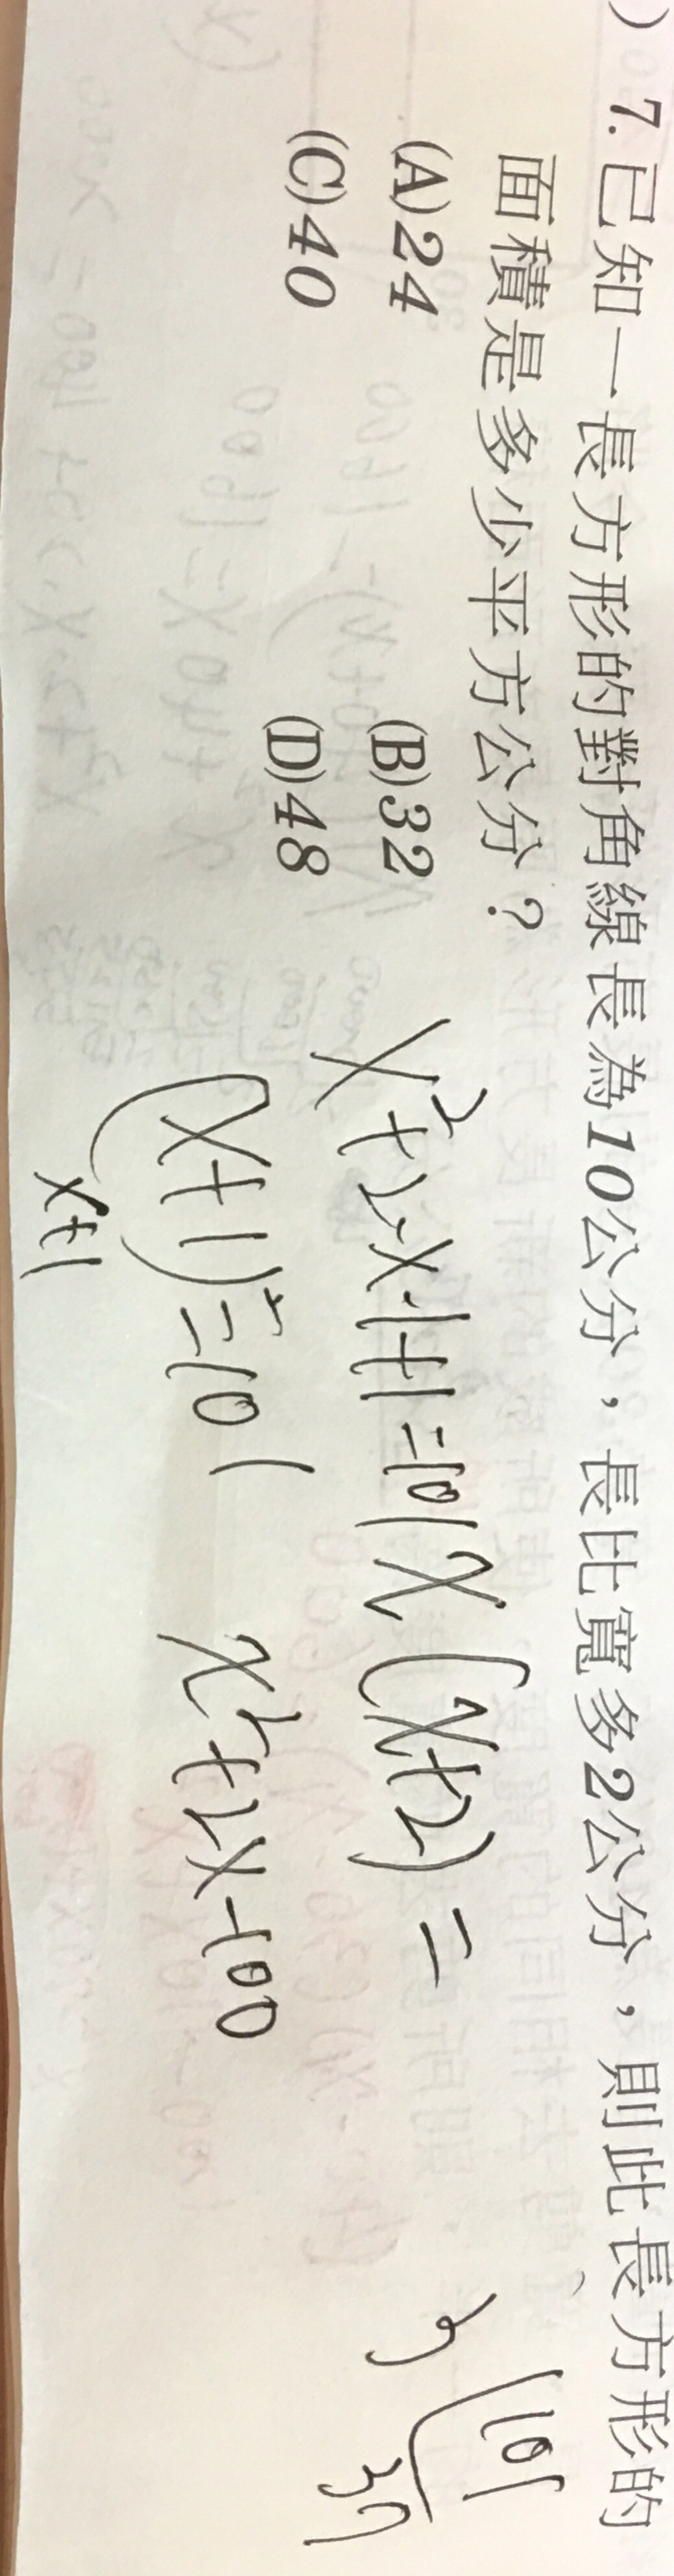 ) 7.已知一長方形的對角線長為10公分，長比寬多2公分，則此長方形的
面積是多少平方公分？
(A)24 (B)32
(C)40 (D)48
x²+2·x·1+1=101
(x+1)²=101
x+1
x(x+2)=
x²+2x-100
101